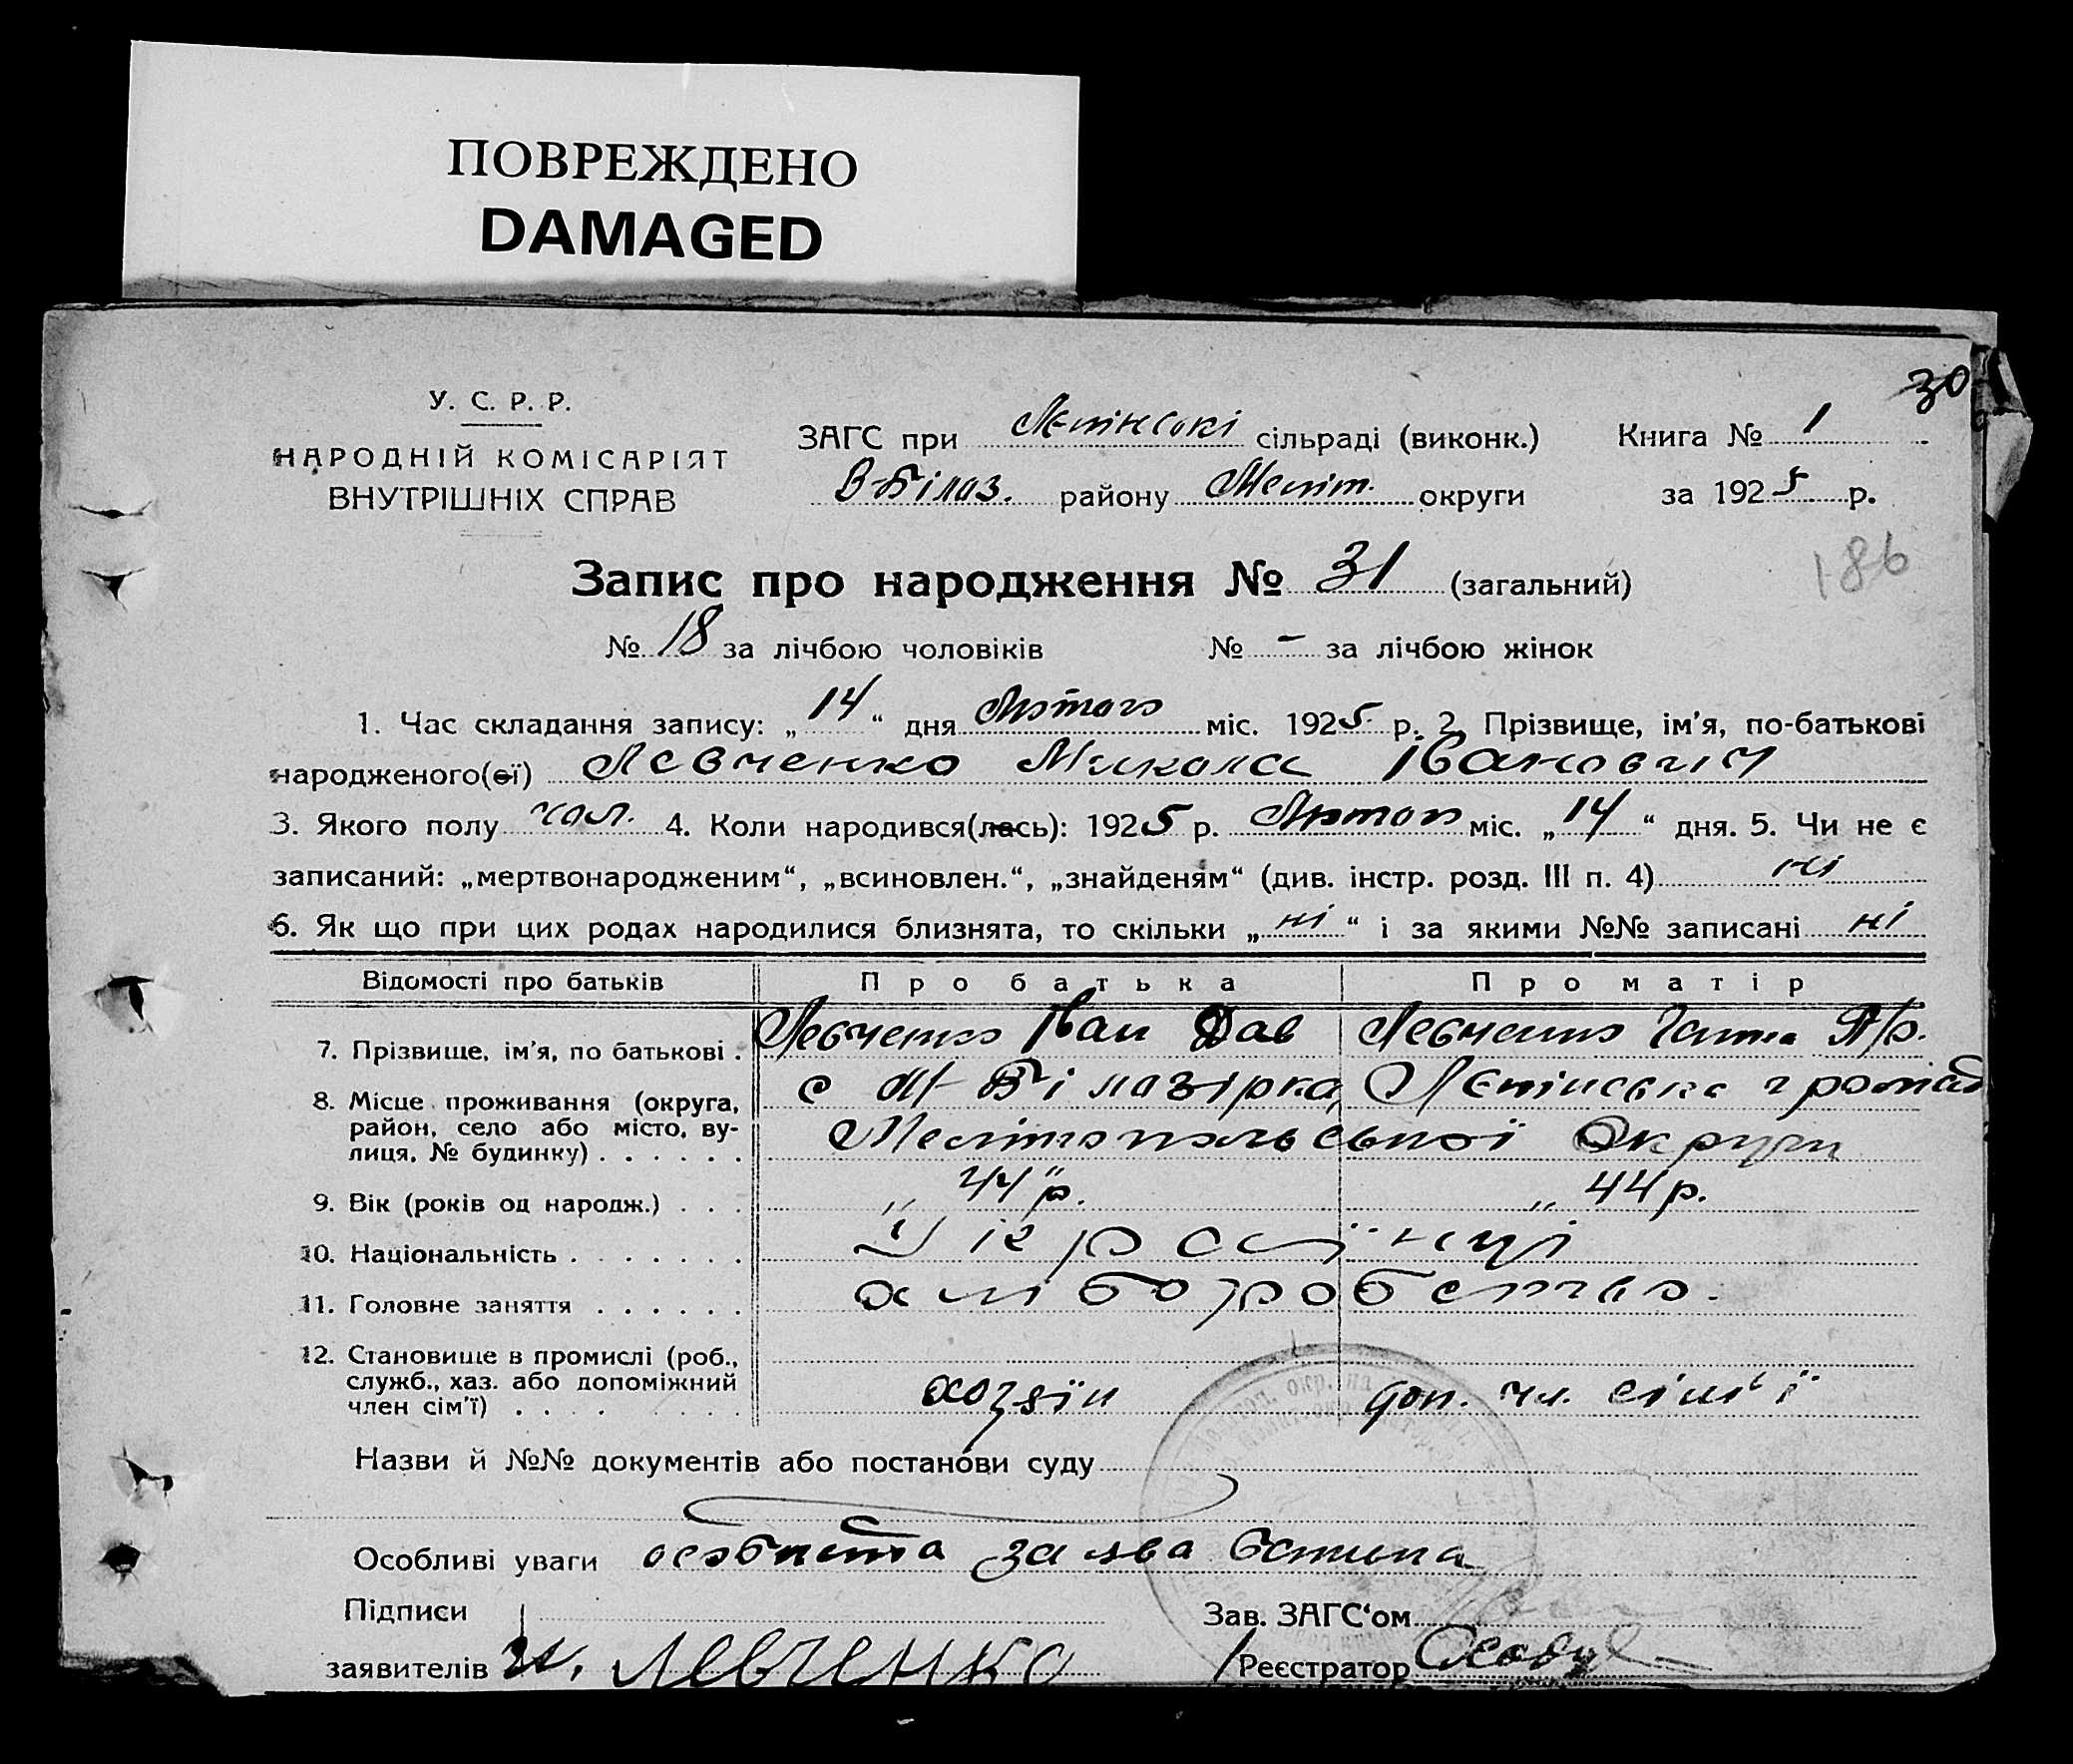 ПОВРЕЖДЕНО
DAMAGED
30
У. С. Р. Р.
НАРОДНІЙ КОМІСАРІЯТ
ВНУТРІШНІХ СПРАВ
ЗАГС при сільраді (виконк.) Книга № 1
В-Білоз. району Меліт. округи за 1925 р.
186
Запис про народження № 31 (загальний)
№ 18 за лічбою чоловіків № - за лічбою жінок
1. Час складання запису: „14“ дня Лютого міс. 1925 р. 2. Прізвище, ім'я, по-батькові
народженого(ої) Левченко Микола Іванович
3. Якого полу чол. 4. Коли народився(лась): 1925 р. Лютого міс. „14“ дня. 5. Чи не є
записаний: „мертвонародженим“, „всиновлен.“, „знайденям“ (див. інстр. розд. III п. 4) ні
6. Як що при цих родах народилися близнята, то скільки „ні“ і за якими №№ записані ні
Відомості про батьків Про батька Про матір
7. Прізвище, ім'я, по батькові . Левченко Іван Дав Левченко
8. Місце проживання (округа, с
район, село або місто, ву- Мелітопольської Округи
лиця, № будинку) . . . . . .
9. Вік (років од народж.) . . . „44" р. „44 р.
10. Національність . . . . . . . Українці
11. Головне заняття . . . . . . хліборобство.
12. Становище в промислі (роб.,
служб., хаз. або допоміжний хозяїн доп. чл. сім'ї
член сім'ї) . . . .
Назви й №№ документів або постанови суду
Особливі уваги особиста заява батька
Підписи Зав. ЗАГС‘ом
заявителів И. Левченко Реєстратор